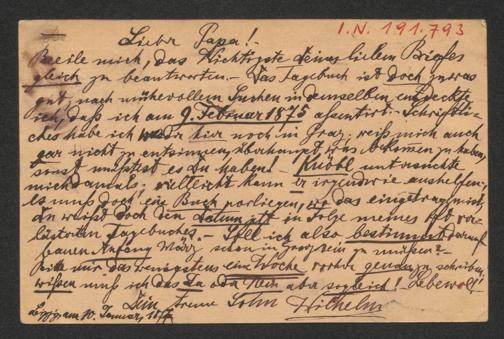 I.N. 191.793
Lieber Papa!
Beeile mich, das Wichtigste deines lieben Briefes
gleich zu beantworten. Das Tagebuch ist doch zu was
gut, nach mühevollem Suchen in demselben entdeckte
ich, daß ich am 9. Februar 1875 assentirt. Schriftli-
ches habe ich weder hier noch in Graz, weiß mich auch
gar nicht zu entsinnen, überhaupt was bekommen zu haben,
sonst müßtest es Du haben! Knöbl untersuchte
mich damals, vielleicht kann er irgendwie aushelfen,
es muß doch ein Buch vorliegen, wo das eingetragen ist,
Du weißt doch den Datum jetzt in Folge meines oft
lästerten Tagebuches. Soll ich also bestimmt darauf
bauen Anfang März schon in zu müßen?
Bitte mir das wenigstens eine Woche vorher genau zu schreiben,
wissen muß ich das Ja oder Nein aber sogleich! Lebewohl!
Dein treuer Sohn Wilhelm
Leipzig am 10. Januar,